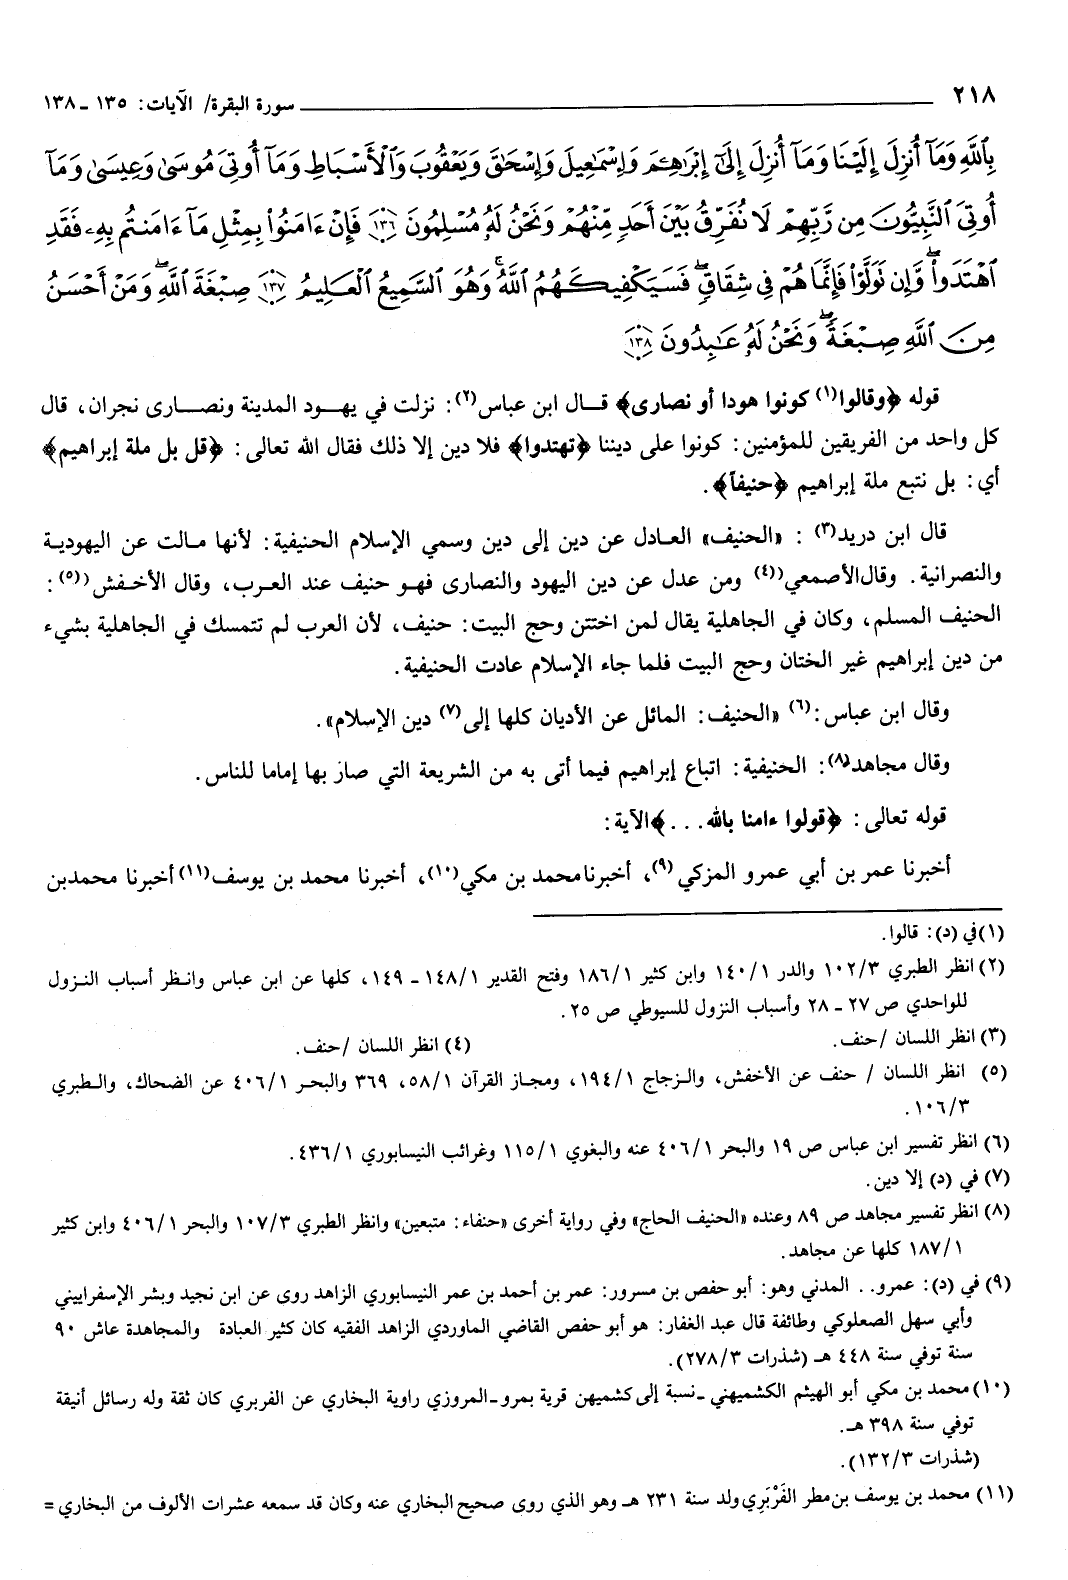 ٢١٨ سورة البقرة/ الآيات: ١٣٥ ـ ١٣٨
بِٱللَّهِ وَمَآ أُنزِلَ إِلَيْنَا وَمَآ أُنزِلَ إِلَىٰٓ إِبْرَٰهِـۧمَ وَإِسْمَٰعِيلَ وَإِسْحَٰقَ وَيَعْقُوبَ وَٱلْأَسْبَاطِ وَمَآ أُوتِىَ مُوسَىٰ وَعِيسَىٰ وَمَآ
أُوتِىَ ٱلنَّبِيُّونَ مِن رَّبِّهِمْ لَا نُفَرِّقُ بَيْنَ أَحَدٍ مِّنْهُمْ وَنَحْنُ لَهُۥ مُسْلِمُونَ ١٣٦ فَإِنْ ءَامَنُوا۟ بِمِثْلِ مَآ ءَامَنتُم بِهِۦ فَقَدِ
ٱهْتَدَوا۟ ۖ وَّإِن تَوَلَّوْا۟ فَإِنَّمَا هُمْ فِى شِقَاقٍ ۖ فَسَيَكْفِيكَهُمُ ٱللَّهُ ۚ وَهُوَ ٱلسَّمِيعُ ٱلْعَلِيمُ ١٣٧ صِبْغَةَ ٱللَّهِ ۖ وَمَنْ أَحْسَنُ
مِنَ ٱللَّهِ صِبْغَةً ۖ وَنَحْنُ لَهُۥ عَٰبِدُونَ ١٣٨
قوله ﴿وقالوا(١) كونوا هودا أو نصارى﴾ قال ابن عباس(٢): نزلت في يهود المدينة ونصارى نجران، قال
كل واحد من الفريقين للمؤمنين: كونوا على ديننا ﴿تهتدوا﴾ فلا دين إلا ذلك فقال الله تعالى: ﴿قل بل ملة إبراهيم﴾
أي: بل نتبع ملة إبراهيم ﴿حنيفاً﴾.
قال ابن دريد(٣) : «الحنيف» العادل عن دين إلى دين وسمي الإسلام الحنيفية: لأنها مالت عن اليهودية
والنصرانية. وقال الأصمعي((٤) ومن عدل عن دين اليهود والنصارى فهو حنيف عند العرب، وقال الأخفش((٥):
الحنيف المسلم، وكان في الجاهلية يقال لمن اختتن وحج البيت: حنيف، لأن العرب لم تتمسك في الجاهلية بشيء
من دين إبراهيم غير الختان وحج البيت فلما جاء الإسلام عادت الحنيفية.
وقال ابن عباس:(٦) «الحنيف: المائل عن الأديان كلها إلى(٧) دين الإسلام».
وقال مجاهد(٨): الحنيفية: اتباع إبراهيم فيما أتى به من الشريعة التي صار بها إماما للناس.
قوله تعالى: ﴿قولوا ءامنا بالله...﴾الآية:
أخبرنا عمر بن أبي عمرو المزكي(٩)، أخبرنا محمد بن مكي(١٠)، أخبرنا محمد بن يوسف(١١) أخبرنا محمد بن
(١) في (د): قالوا.
(٢) انظر الطبري ١٠٢/٣ والدر ١٤٠/١ وابن كثير ١٨٦/١ وفتح القدير ١٤٨/١ ـ ١٤٩، كلها عن ابن عباس وانظر أسباب النزول
للواحدي ص ٢٧ ـ ٢٨ وأسباب النزول للسيوطي ص ٢٥.
(٣) انظر اللسان /حنف. (٤) انظر اللسان /حنف.
(٥) انظر اللسان / حنف عن الأخفش، والزجاج ١٩٤/١، ومجاز القرآن ٥٨/١، ٣٦٩ والبحر ٤٠٦/١ عن الضحاك، والطبري
١٠٦/٣.
(٦) انظر تفسير ابن عباس ص ١٩ والبحر ٤٠٦/١ عنه والبغوي ١١٥/١ وغرائب النيسابوري ٤٣٦/١.
(٧) في (د) إلا دين.
(٨) انظر تفسير مجاهد ص ٨٩ وعنده «الحنيف الحاج» وفي رواية أخرى «حنفاء: متبعين» وانظر الطبري ١٠٧/٣ والبحر ٤٠٦/١ وابن كثير
١٨٧/١ كلها عن مجاهد.
(٩) في (د): عمرو.. المدني وهو: أبو حفص بن مسرور: عمر بن أحمد بن عمر النيسابوري الزاهد روى عن ابن نجيد وبشر الإسفراييني
وأبي سهل الصعلوكي وطائفة قال عبد الغفار: هو أبو حفص القاضي الماوردي الزاهد الفقيه كان كثير العبادة والمجاهدة عاش ٩٠
سنة توفي سنة ٤٤٨ هـ (شذرات ٢٧٨/٣).
(١٠) محمد بن مكي أبو الهيثم الكشميهني ـ نسبة إلى كشميهن قرية بمرو ـ المروزي راوية البخاري عن الفربري كان ثقة وله رسائل أنيقة
توفي سنة ٣٩٨ هـ.
(شذرات ١٣٢/٣).
(١١) محمد بن يوسف بن مطر الفَرْبَرِي ولد سنة ٢٣١ هـ وهو الذي روى صحيح البخاري عنه وكان قد سمعه عشرات الألوف من البخاري =